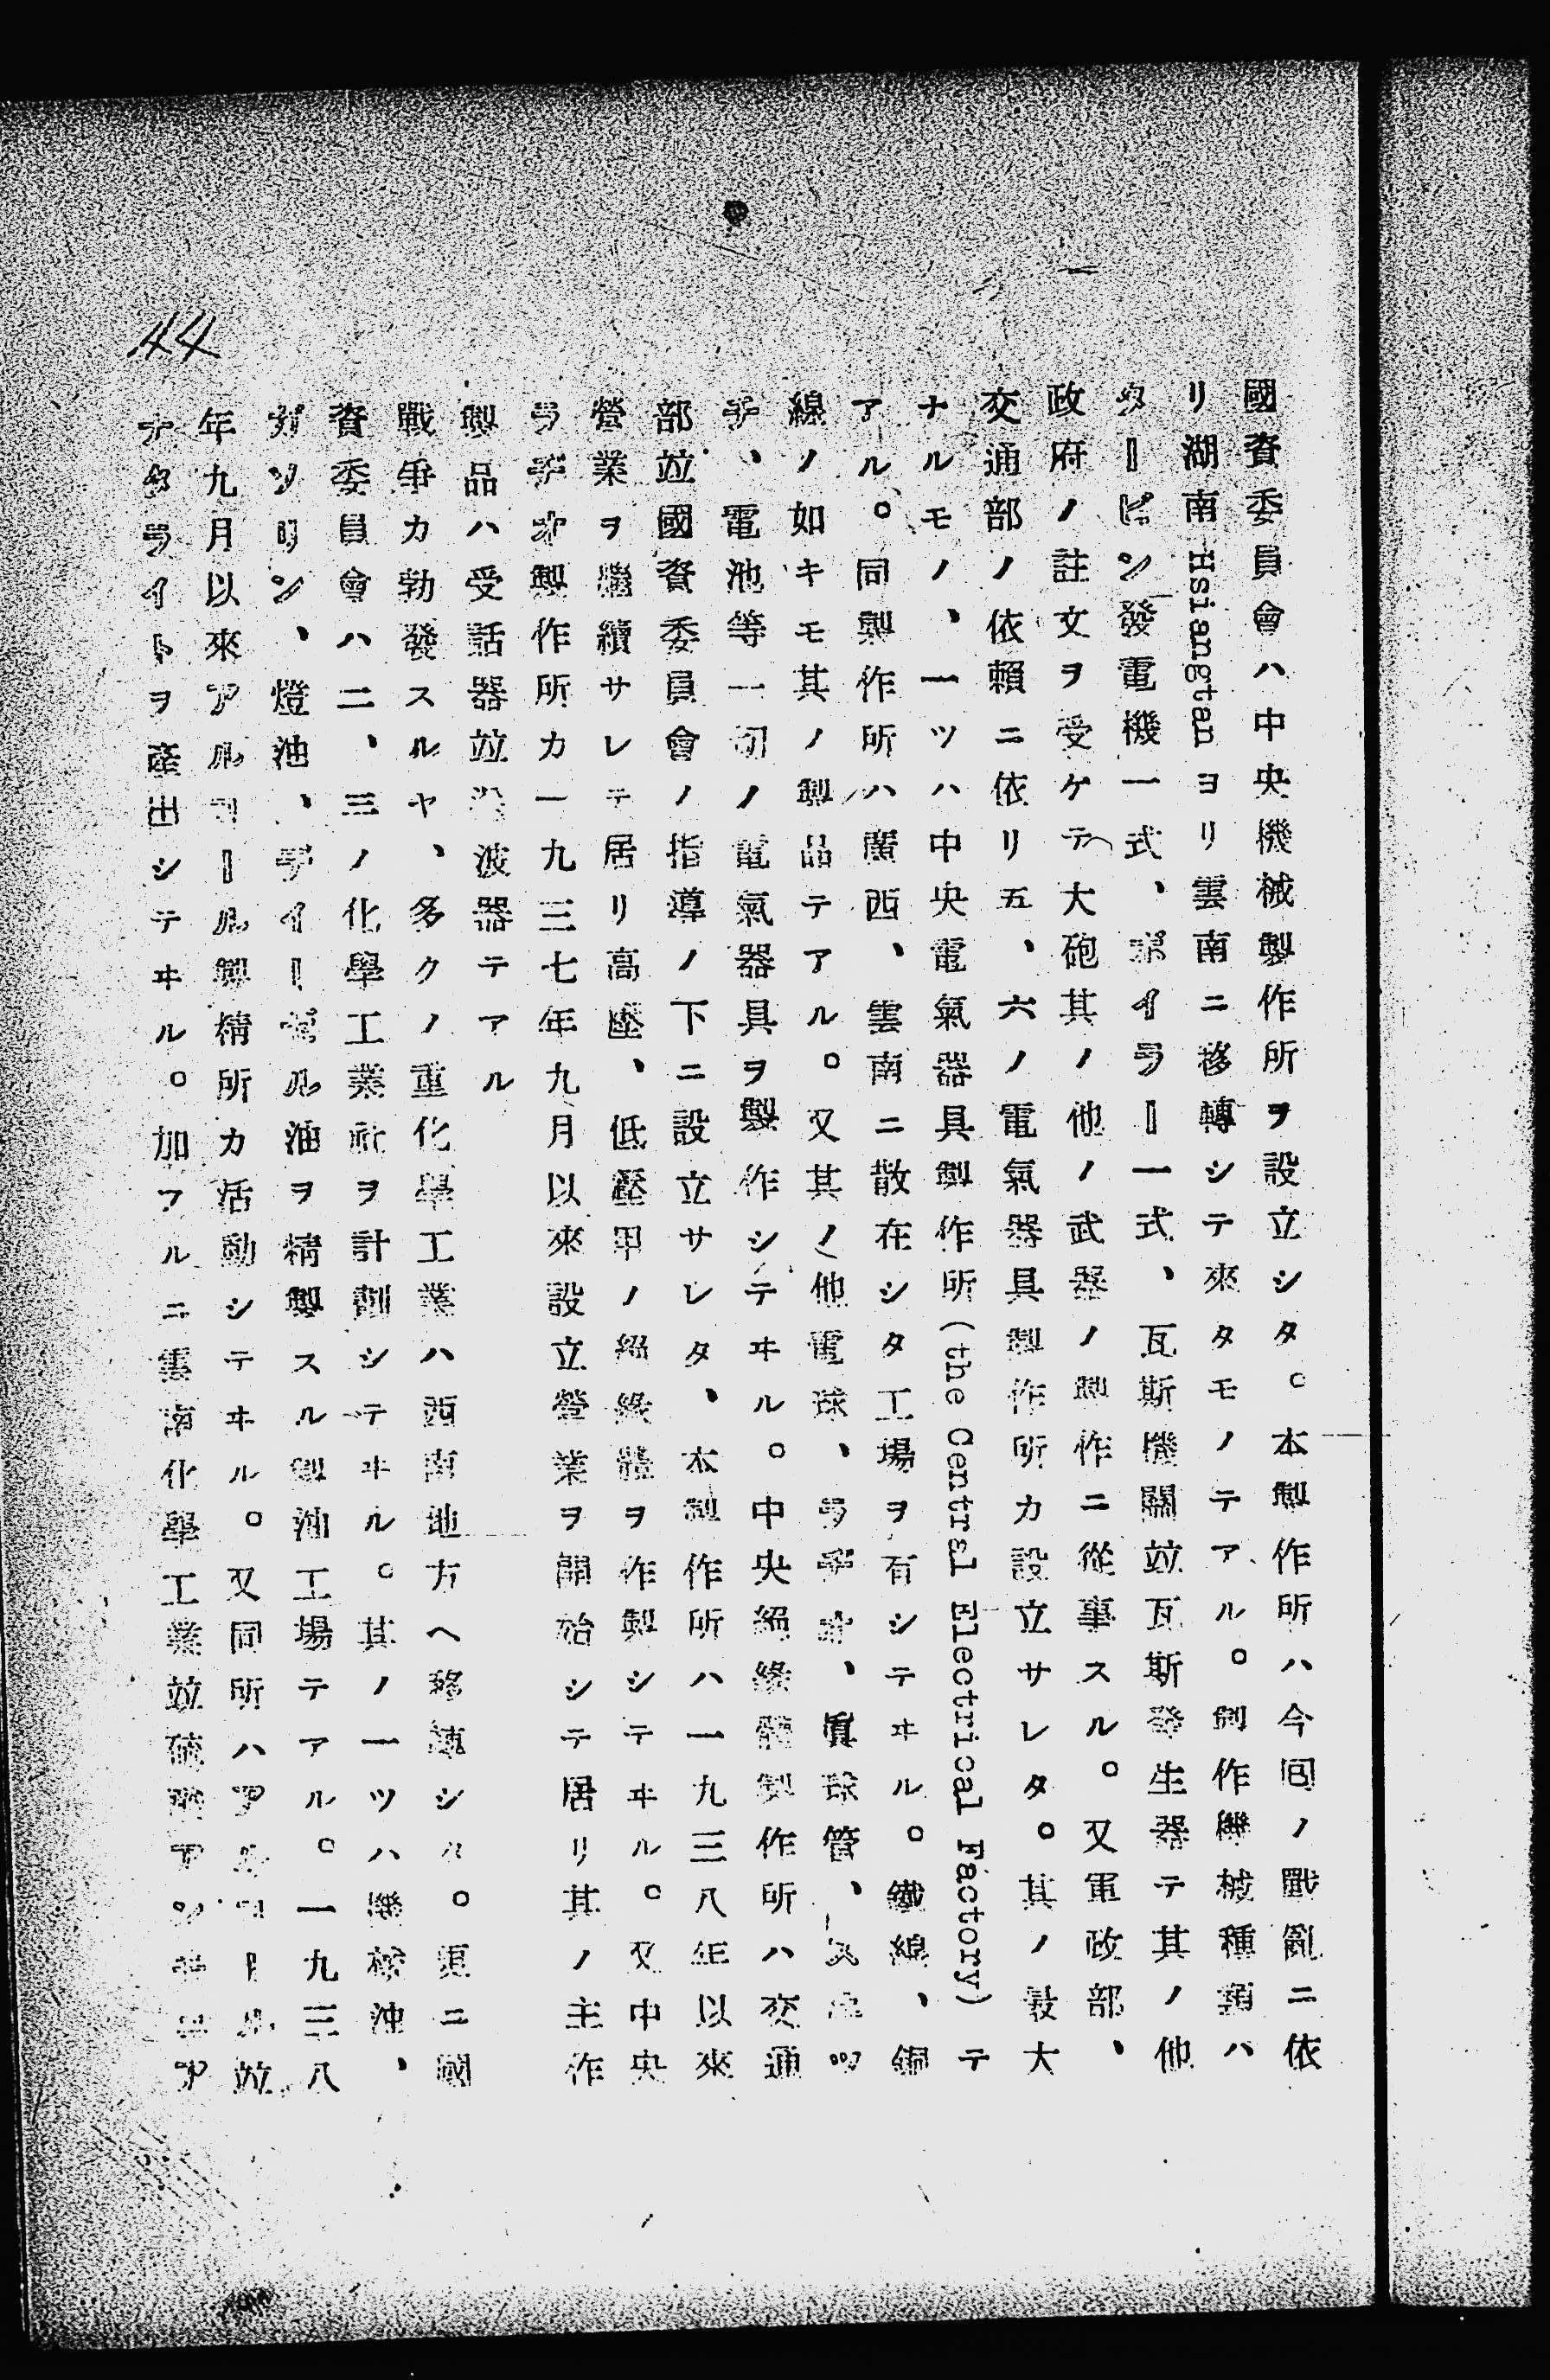 國資委員會ハ中央機械製作所ヲ設立シタ。本製作所ハ今囘ノ戰亂ニ依
リ湖南 Hsiangtan ヨリ雲南ニ移轉シテ來タモノテアル。製作機械種類ハ
タービン發電機一式、ボイラー一式、瓦斯機關竝瓦斯發生器テ其ノ他
政府ノ註文ヲ受ケテ大砲其ノ他ノ武器ノ製作ニ從事スル。又軍政部、
交通部ノ依賴ニ依リ五、六ノ電氣器具製作所カ設立サレタ。其ノ最大
ナルモノ、一ツハ中央電氣器具製作所(the Central Electrical Factory)テ
アル。同製作所ハ廣西、雲南ニ散在シタ工場ヲ有シテヰル。鐵線、銅
線ノ如キモ其ノ製品テアル。又其ノ他電球、ラヂオ、眞球管、スヰッ
チ、電池等一切ノ電氣器具ヲ製作シテヰル。中央絕緣體製作所ハ交通
部竝國資委員會ノ指導ノ下ニ設立サレタ、本製作所ハ一九三八年以來
營業ヲ繼續サレテ居リ高壓、低壓用ノ絕緣體ヲ作製シテヰル。又中央
ラヂオ製作所カ一九三七年九月以來設立營業ヲ開始シテ居リ其ノ主作
製品ハ受話器竝波器テアル
戰爭カ勃發スルヤ、多クノ重化學工業ハ西南地方ヘ移轉シタ。更ニ國
資委員會ハ二、三ノ化學工業社ヲ計劃シテヰル。其ノ一ツハ機械油、
ガソリン、燈油、ディーゼル油ヲ精製スル製油工場テアル。一九三八
年九月以來アルコール製精所カ活動シテヰル。又同所ハアルコール竝
ナタライトヲ產出シテヰル。加フルニ雲南化學工業竝硫酸アンモニア
44